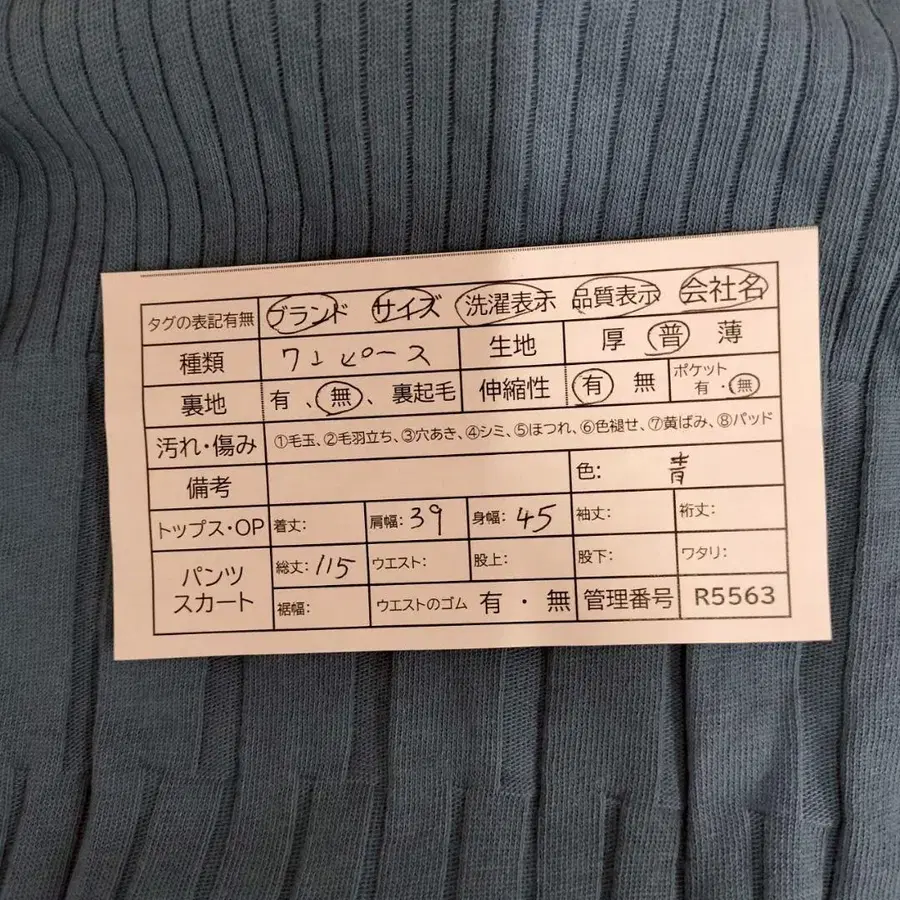 タグの表記有無 ブランド サイズ 洗濯表示 品質表示 会社名
種類 ワンピース 生地 厚 普 薄
裏地 有、無、裏起毛 伸縮性 有 無 ポケット 有・無
汚れ・傷み ①毛玉、②毛羽立ち、③穴あき、④シミ、⑤ほつれ、⑥色褪せ、⑦黄ばみ、⑧パッド
備考 色: 青
トップス・OP 着丈: 肩幅: 39 身幅: 45 袖丈: 裄丈:
パンツ スカート 総丈: 115 ウエスト: 股上: 股下: ワタリ:
裾幅: ウエストのゴム 有・無 管理番号 R5563